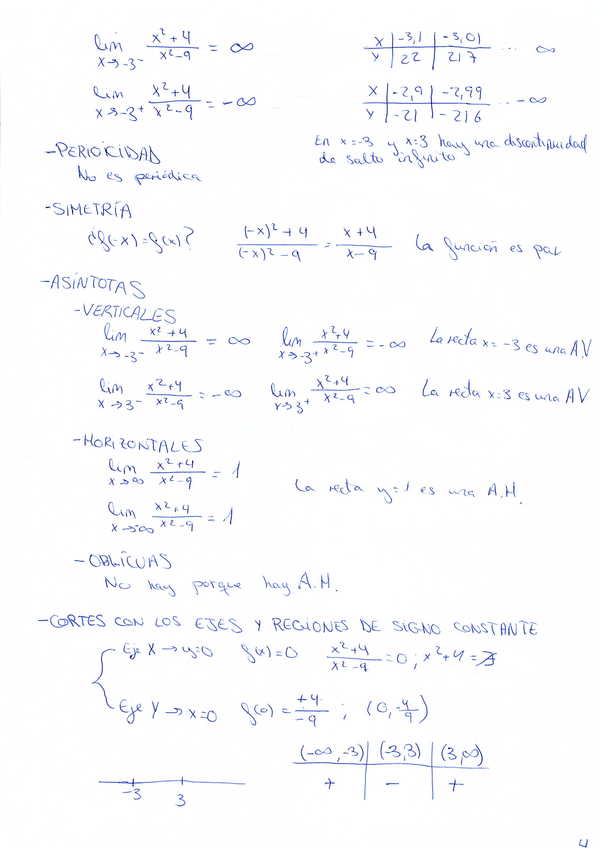 lim x→-3⁻ (x²+4)/(x²-9) = ∞
x | -3,1 | -3,01
y | 22 | 217 ... ∞
lim x→-3⁺ (x²+4)/(x²-9) = -∞
x | -2,9 | -2,99
y | -21 | -216 ... -∞
En x=-3 y x=3 hay una discontinuidad
de salto infinito
-PERIOICIDAD
No es periódica
-SIMETRÍA
¿f(-x)=f(x)? ((-x)²+4)/((-x)²-9) = (x+4)/(x-9) La función es par
-ASÍNTOTAS
-VERTICALES
lim x→-3⁻ (x²+4)/(x²-9) = ∞ lim x→-3⁺ (x²+4)/(x²-9) = -∞ La recta x=-3 es una AV
lim x→3⁻ (x²+4)/(x²-9) = -∞ lim x→3⁺ (x²+4)/(x²-9) = ∞ La recta x=3 es una AV
-HORIZONTALES
lim x→∞ (x²+4)/(x²-9) = 1
La recta y=1 es una A.H.
lim x→-∞ (x²+4)/(x²-9) = 1
-OBLÍCUAS
No hay porque hay A.H.
-CORTES CON LOS EJES Y REGIONES DE SIGNO CONSTANTE
Eje X → y=0 f(x)=0 (x²+4)/(x²-9) = 0 ; x²+4 = ∄
Eje Y → x=0 f(0) = +4/-9 ; (0, -4/9)
(-∞,-3) | (-3,3) | (3,∞)
+ | - | +
-3 3
4